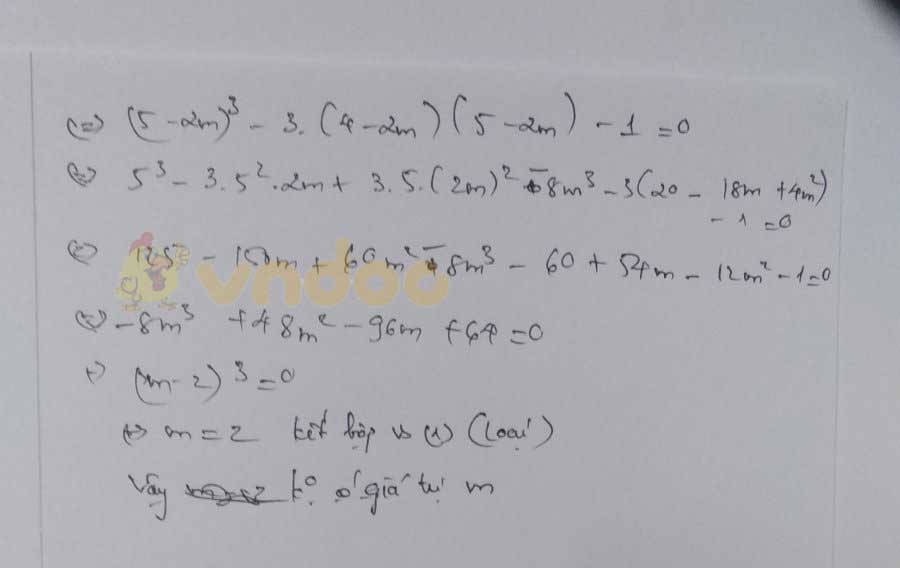 (=) (5 - 2m)³ - 3.(4 - 2m)(5 - 2m) - 1 = 0
⇔ 5³ - 3.5².2m + 3.5.(2m)² - 8m³ - 3(20 - 18m + 4m²)
- 1 = 0
⇔ 125 - 150m + 60m² - 8m³ - 60 + 54m - 12m² - 1 = 0
vndoc
⇔ -8m³ + 48m² - 96m + 64 = 0
⇔ (m - 2)³ = 0
⇔ m = 2 kết hợp vs (1) (loại)
Vậy ko có giá trị m